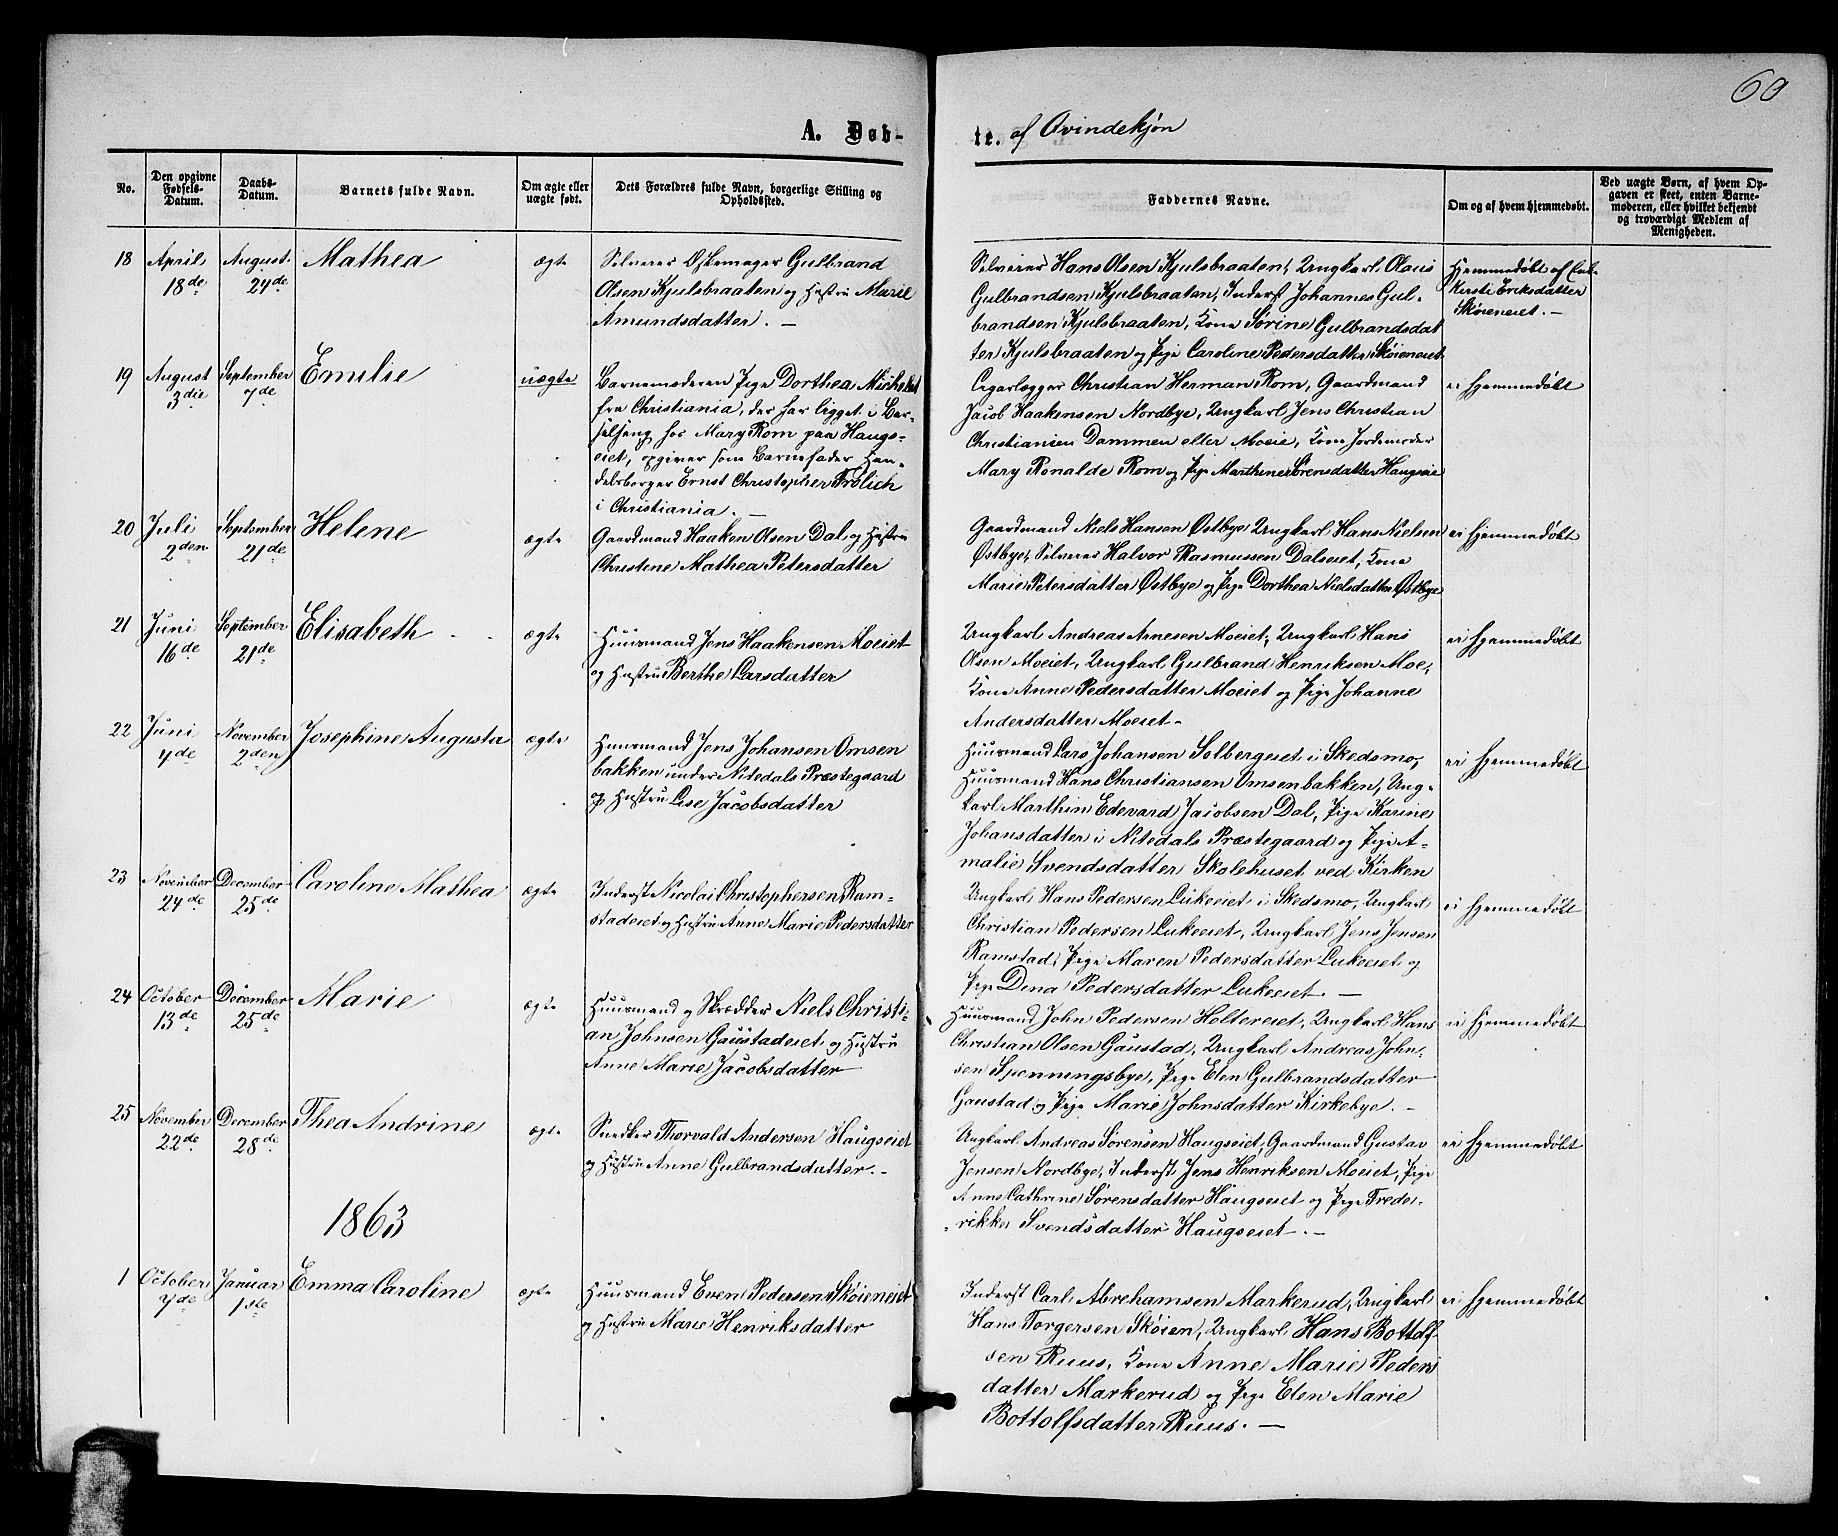 60
A. Døb-
te. af Qvindekjøn
No.
Den opgivne
Fødsels-
Datum.
Daabs-
Datum.
Barnets fulde Navn.
Om ægte eller
uægte født.
Dets Forældres fulde Navn, borgerlige Stilling og
Opholdssted.
Faddernes Navne.
Om og af hvem hjemmedøbt.
Ved uægte Børn, af hvem Op-
gaven er skeet, enten Barne-
moderen, eller hvilket bekjendt
og troværdigt Medlem af
Menigheden.
18 April 18de August 24de Mathea ægte
Selveier Øskemager Gulbrand
Olsen Kjulsbraaten og Hustru Marie
Amundsdatter. —
Selveier Hans Olsen Kjulsbraaten, Ungkarl Olaus
Gulbrandsen Kjulsbraaten, Inderst Johannes Gul-
brandsen Kjulsbraaten, Kone Sørine Gulbrandsdat
ter Kjulsbraaten og Pige Caroline Pedersdatter Skøieneiet
Hjemmedøbt af
Kirsti Eriksdatter
Skøieneiet. —
19 August 3die September 7de Emilie uægte
Barnemoderen Pige Dorthea Michelet
fra Christiania, der har ligget i Bar-
selseng hos Mary Rom paa Haugs-
eiet, opgiver som Barnefader Han-
delsborger Ernst Christopher Frölich
i Christiania. —
Cigarlægger Christian Herman Rom, Gaardmand
Jacob Haakensen Nordbye, Ungkarl Jens Christian
Christiansen Dammen eller Moeie, Kone Jordemoder
Mary Ronalde Rom og Pige Marthine Sørensdatter Haugseie
ei hjemmedøbt
20 Juli 2den September 21de Helene ægte
Gaardmand Haaken Olsen Dal og Hustru
Christine Mathea Petersdatter
Gaardmand Niels Hansen Østbye, Ungkarl Hans Nielsen
Østbye, Selveier Halvor Rasmussen Dalseiet, Kone
Marie Petersdatter Østbye og Pige Dorthea Nielsdatter Østbye
ei hjemmedøbt
21 Juni 16de September 21de Elisabeth ægte
Huusmand Jens Haakensen Moeiet
og Hustru Berthe Larsdatter
Ungkarl Andreas Arnesen Moeiet, Ungkarl Hans
Olsen Moeiet, Ungkarl Gulbrand Henriksen Moe,
Kone Anne Pedersdatter Moeiet og Pige Johanne
Andersdatter Moeiet —
ei hjemmedøbt
22 Juni 4de November 2den Josephine Augusta ægte
Huusmand Jens Johansen Omsen
bakken under Nitedals Præstegaard
og Hustru Lise Jacobsdatter
Huusmand Lars Johansen Solbergeiet i Skedsmo,
Huusmand Hans Christiansen Omsenbakken, Ung-
karl Marthin Edevard Jacobsen Dal, Pige Karine
Johansdatter i Nitedals Præstegaard og Pige A-
malie Svendsdatter Skolehuset ved Kirken
ei hjemmedøbt
23 November 24de December 25de Caroline Mathea ægte
Inderst Nicolai Christophersen Ram-
stadeiet og Hustru Anne Marie Pedersdatter
Ungkarl Hans Pedersen Lukeeiet i Skedsmo, Ungkarl
Christian Pedersen Lukeeiet, Ungkarl Jens Jensen
Ramstad, Pige Maren Pedersdatter Lukeeiet og
Pige Dina Pedersdatter Lukeeiet —
ei hjemmedøbt
24 October 13de December 25de Marie ægte
Huusmand og Skrædder Niels Christi-
an Johnsen Gaustadeiet og Hustru
Anne Marie Jacobsdatter
Huusmand John Pedersen Holtereiet, Ungkarl Hans
Christian Olsen Gaustad, Ungkarl Andreas John-
sen Spenningsbye, Pige Elen Gulbrandsdatter
Gaustad og Pige Marie Johnsdatter Kirkebye. —
ei hjemmedøbt
25 November 22de December 28de Thea Andrine ægte
Snedker Thorvald Andersen Haugseiet
og Hustru Anne Gulbrandsdatter. —
Ungkarl Andreas Sørensen Haugseiet, Gaardmand Gustav
Jensen Nordbye, Inderst Jens Henriksen Moeiet, Pige
Anne Cathrine Sørensdatter Haugseiet og Pige Frede-
rikke Svendsdatter Haugseiet. —
ei hjemmedøbt
1863
1 October 7de Januar 1ste Emma Caroline ægte
Huusmand Even Pedersen Skøieneiet
og Hustru Marie Henriksdatter
Inderst Carl Abrehamsen Markerud, Ungkarl
Hans Torgersen Skøien, Ungkarl Hans Bottolf
sen Ruus, Kone Anne Marie Peders
datter Markerud og Pige Elen Marie
Bottolfsdatter Ruus. —
ei hjemmedøbt